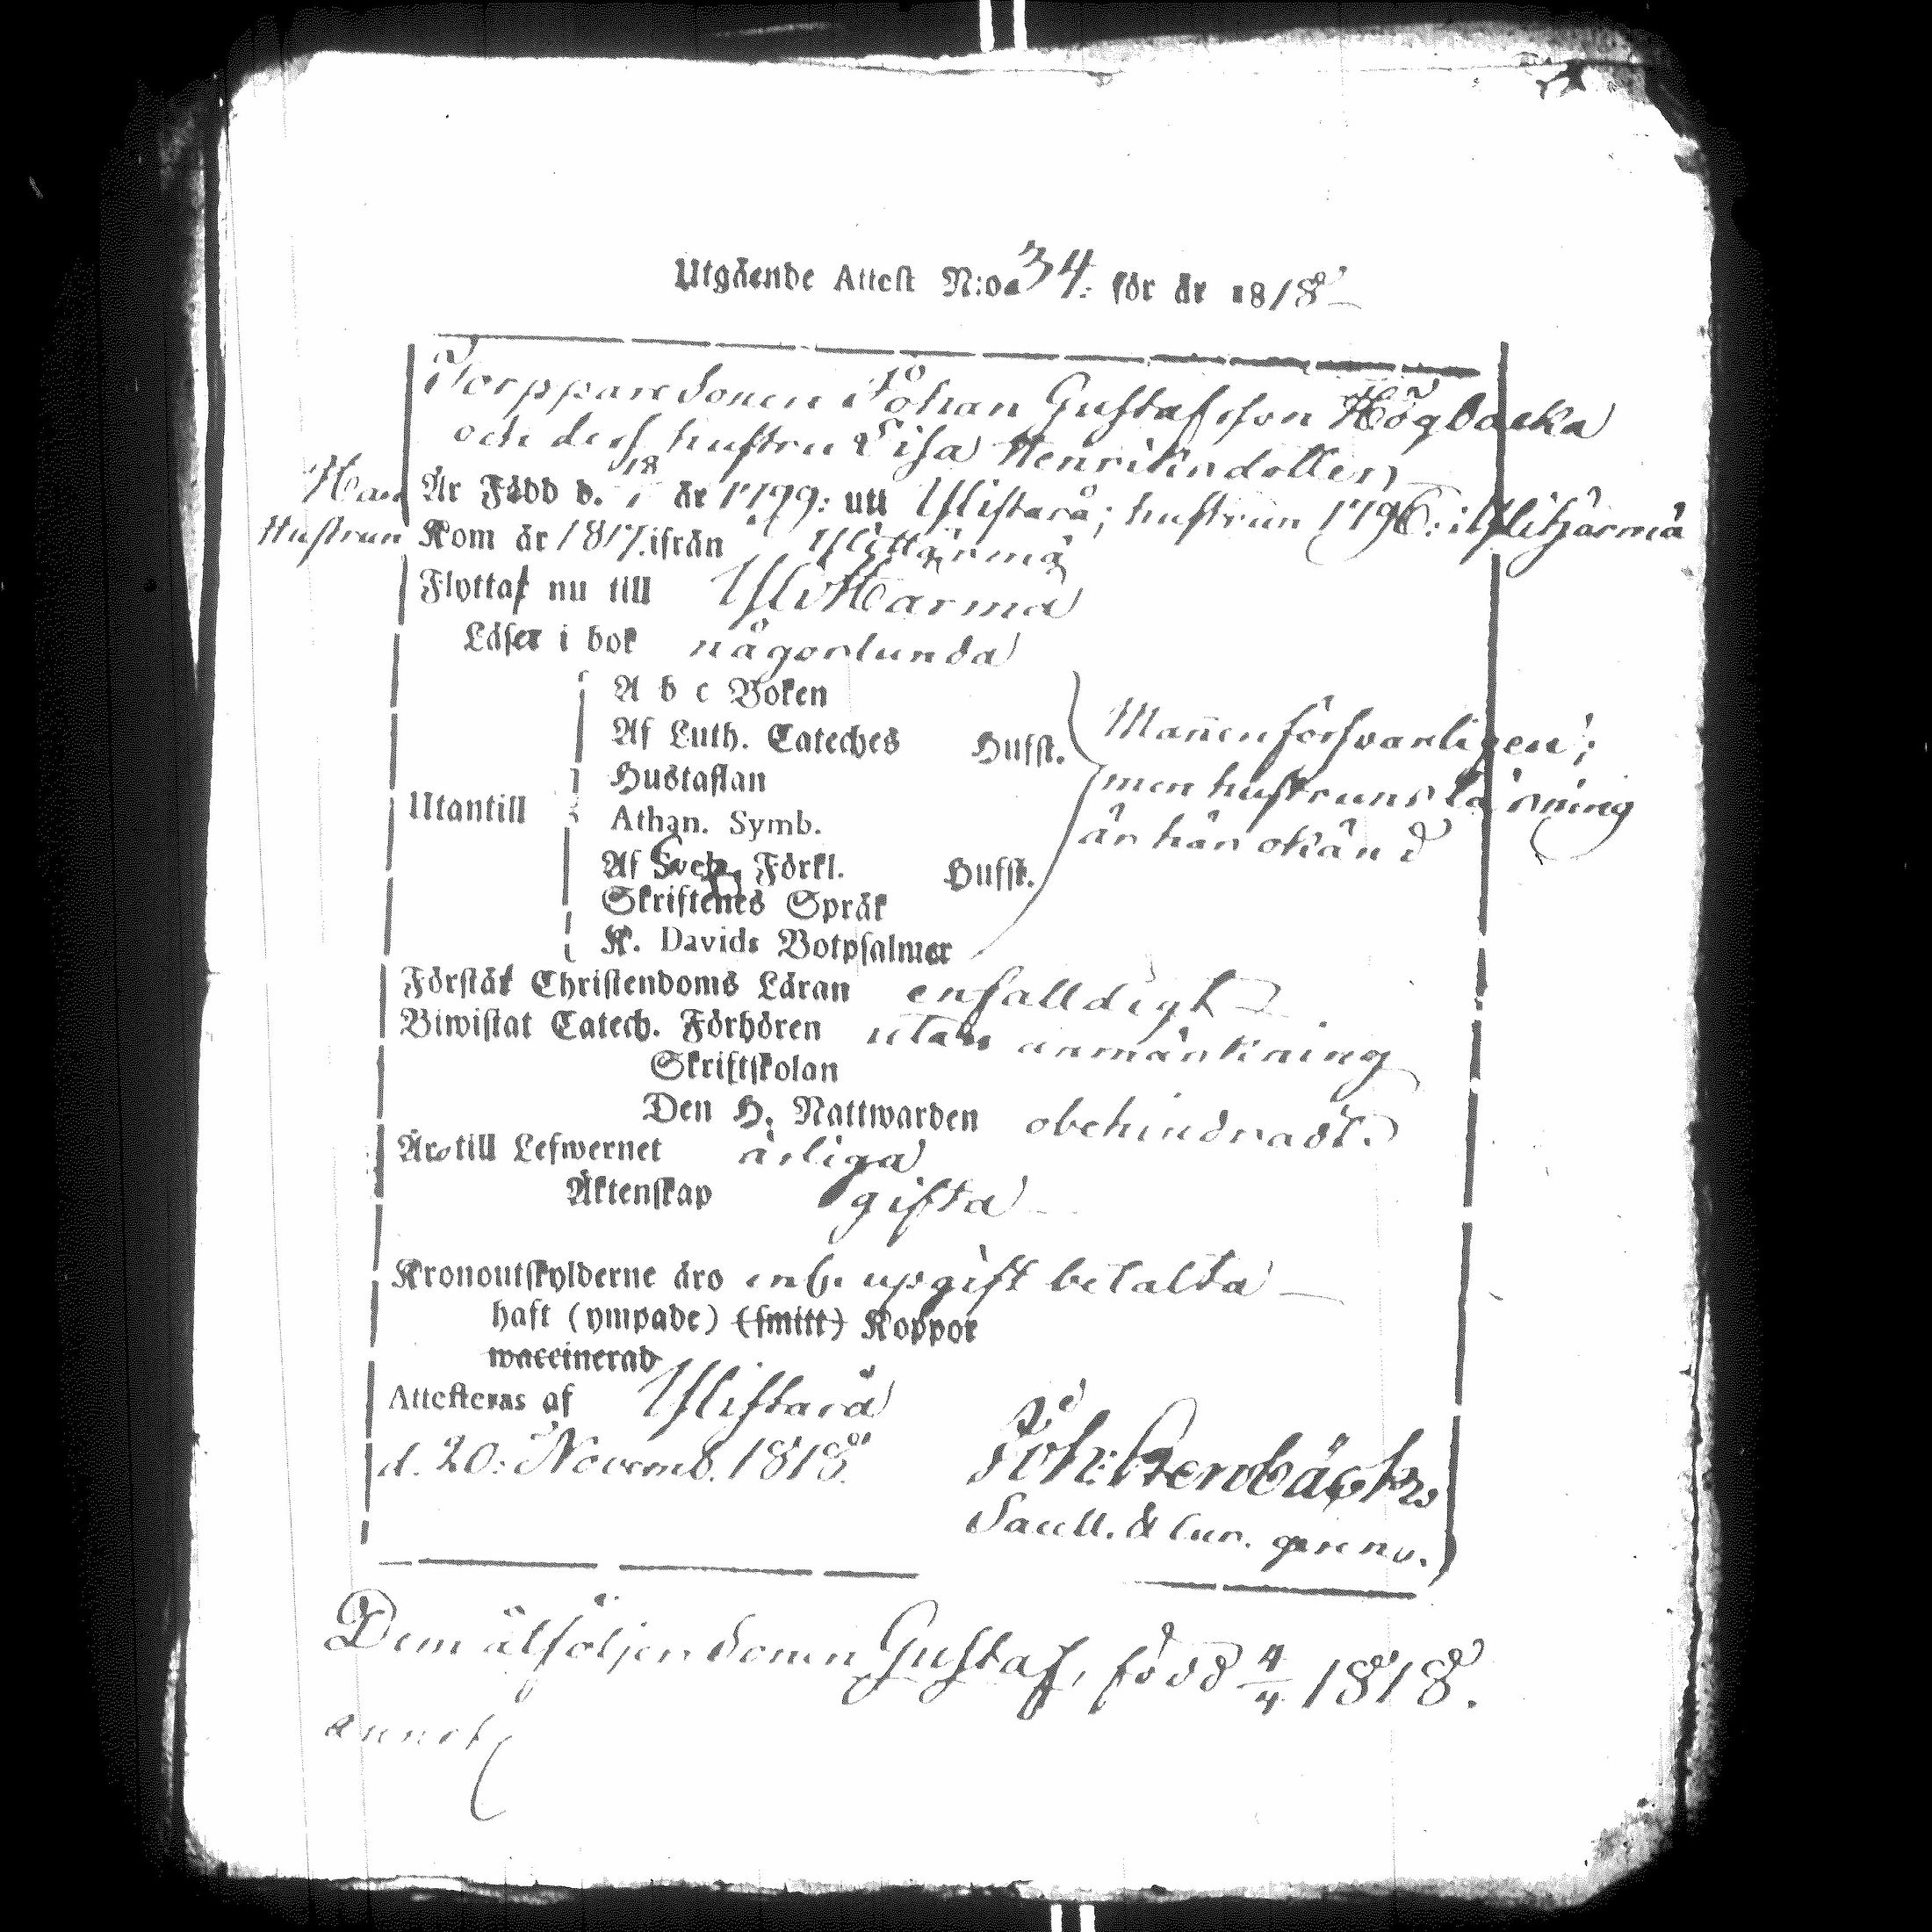 Utgående Attest N:o 34: för år 1818
Torpparesonen Johan Gustafsson Högbacka
och dess hustru Lisa Henriksdotter
Han Är Född d. 18/1 år 1799: uti Ylistarå; hustrun 1796: i Ylihärmä
Hustrun Kom år 1817. ifrån Ylihärmä
Flytta nu till Yli Härmä
Läser i bok någorlunda
A b c Boken
Af Luth. Cateches Hufst. Mannen försvarligen;
Hustaflan men hustruns läsning
Utantill
Athan. Symb. är här okänd
Af Sveb. Förkl. Hufst.
Skriftenes Språk
K. Davids Botpsalmer
Förstår Christendoms Läran enfalldigt
Biwistat Catech. Förhören utan anmärkning
Skriftskolan
Den H. Nattwarden obehindradt.
Äro till Lefwernet ärliga
Äktenskap gifta
Kronoutskylderne äro enl. upgift betalta
haft (ympade) (smitt) Koppor
waccinerad
Attesteras af Ylistarå
d. 20: Novemb. 1818.
Joh:
Sacell. &
Dem åtföljer sonen Gustaf, född 4/4 1818.